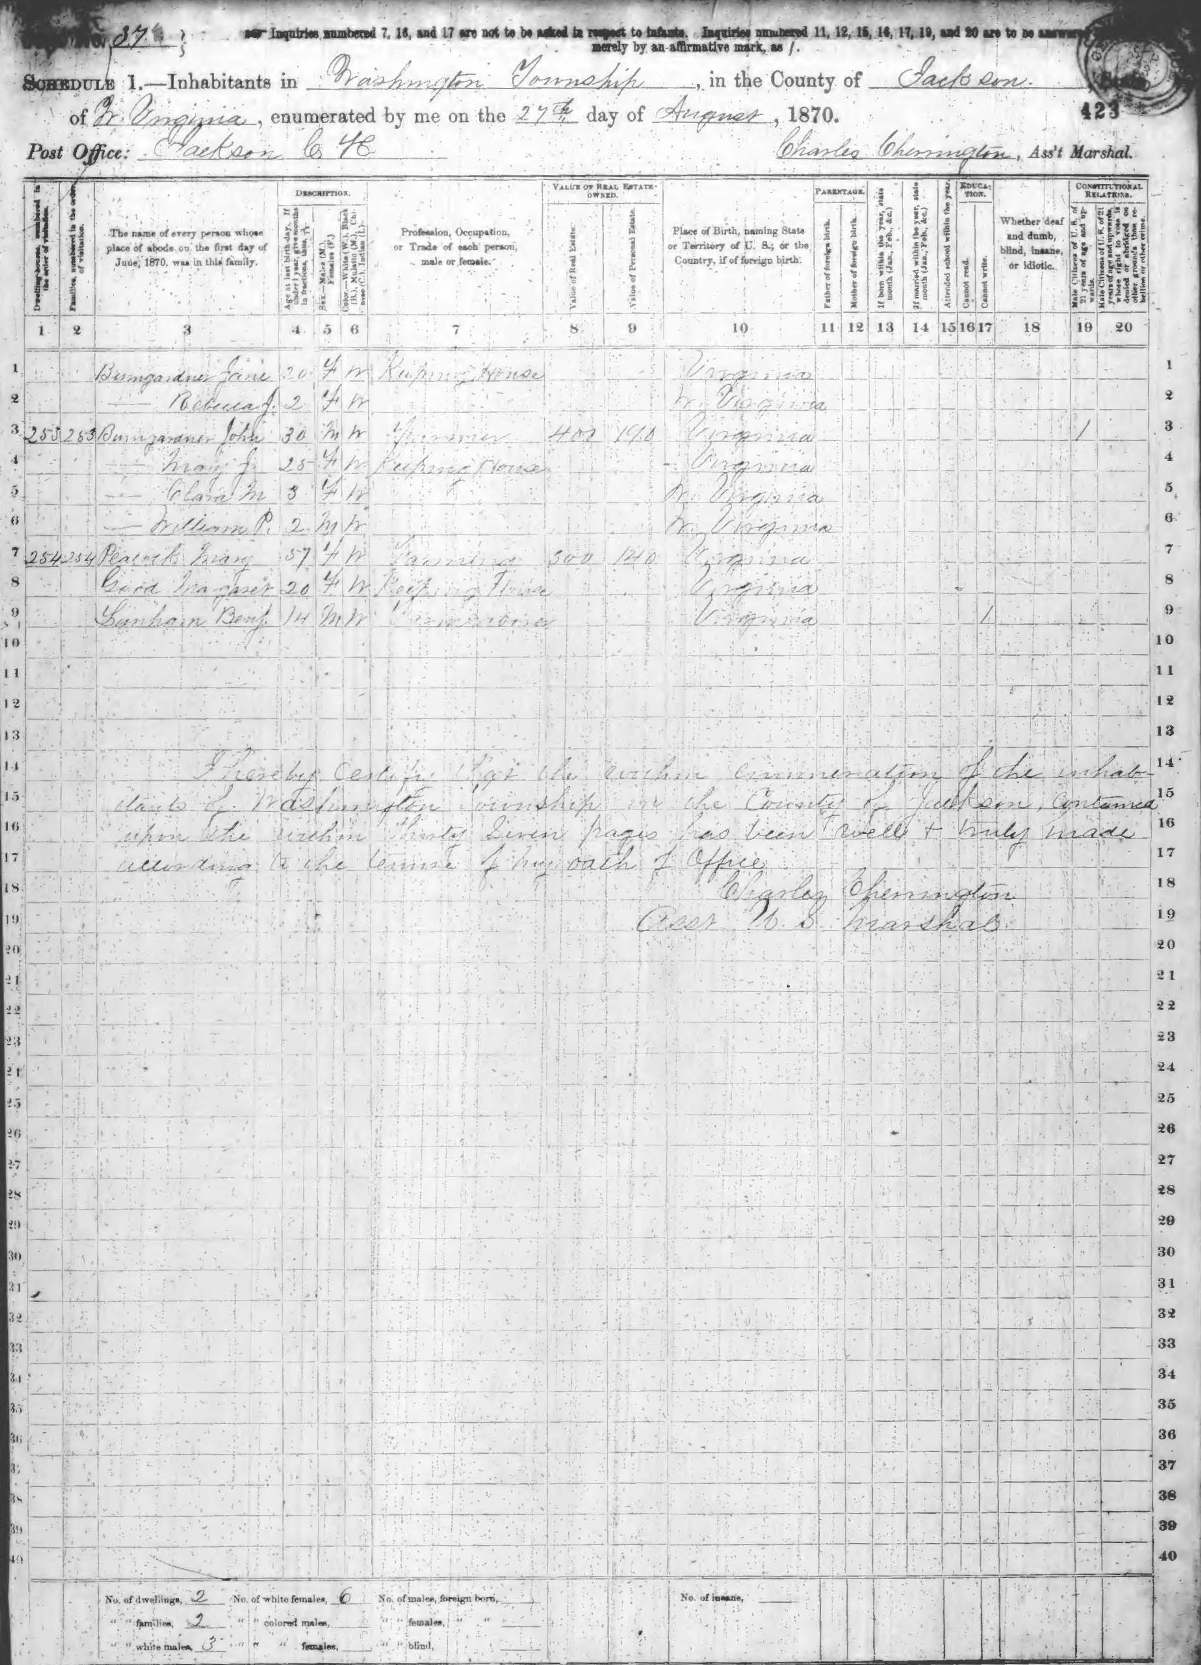 37
Inquiries numbered 7, 16, and 17 are not to be asked in respect to infants. Inquiries numbered 11, 12, 15, 16, 17, 19, and 20 are to be answered
merely by an affirmative mark, as /.
SCHEDULE 1.—Inhabitants in Washington Township, in the County of Jackson, State
of W. Virginia, enumerated by me on the 27th day of August, 1870.
423
Post Office: Jackson C H
Charles Cherrington, Ass't Marshal.
Dwelling-houses, numbered in the order of visitation.
Families, numbered in the order of visitation.
The name of every person whose place of abode on the first day of June, 1870, was in this family.
DESCRIPTION.
Age at last birth-day. If under 1 year, give months in fractions, thus,
Sex.—Males (M.), Females (F.)
Color.—White (W.), Black (B.), Mulatto (M.), Chinese (C.), Indian (I.)
Profession, Occupation, or Trade of each person, male or female.
VALUE OF REAL ESTATE OWNED.
Value of Real Estate.
Value of Personal Estate.
Place of Birth, naming State or Territory of U. S.; or the Country, if of foreign birth.
PARENTAGE.
Father of foreign birth.
Mother of foreign birth.
If born within the year, state month (Jan., Feb., &c.)
If married within the year, state month (Jan., Feb., &c.)
Attended school within the year.
EDUCATION.
Cannot read.
Cannot write.
Whether deaf and dumb, blind, insane, or idiotic.
CONSTITUTIONAL RELATIONS.
Male Citizens of U. S. of 21 years of age and upwards.
Male Citizens of U. S. of 21 years of age and upwards, whose right to vote is denied or abridged on other grounds than rebellion or other crime.
1 2 3 4 5 6 7 8 9 10 11 12 13 14 15 16 17 18 19 20
1 Bumgardner Jane 20 F W Keeping House Virginia 1
2 — Rebecca J. 2 F W W. Virginia 2
3 253 253 Bumgardner John 30 M W Farmer 400 190 Virginia 1 3
4 — Mary J. 25 F W Keeping House Virginia 4
5 — Clara M 3 F W W. Virginia 5
6 — William P. 2 M W W. Virginia 6
7 254 254 Peacock Mary 57 F W Farming 500 140 Virginia 7
8 Good Margaret 20 F W Keeping House Virginia 8
9 Lanham Benj. 14 M W Virginia 1 9
10 10
11 11
12 12
13 13
14 I hereby Certify that the within enumeration of the inhab- 14
15 itants of Washington Township in the County of Jackson, Contained 15
16 upon the within thirty Seven pages has been well & truly made 16
17 according to the tenure of my oath of Office 17
18 Charles Cherrington 18
19 Asst U. S. Marshal 19
20 20
21 21
22 22
23 23
24 24
25 25
26 26
27 27
28 28
29 29
30 30
31 31
32 32
33 33
34 34
35 35
36 36
37 37
38 38
39 39
40 40
No. of dwellings, 2 No. of white females, 6 No. of males, foreign born, No. of insane,
" " families, 2 " " colored males, " " females, " "
" " white males, 3 " " " females, " " blind,